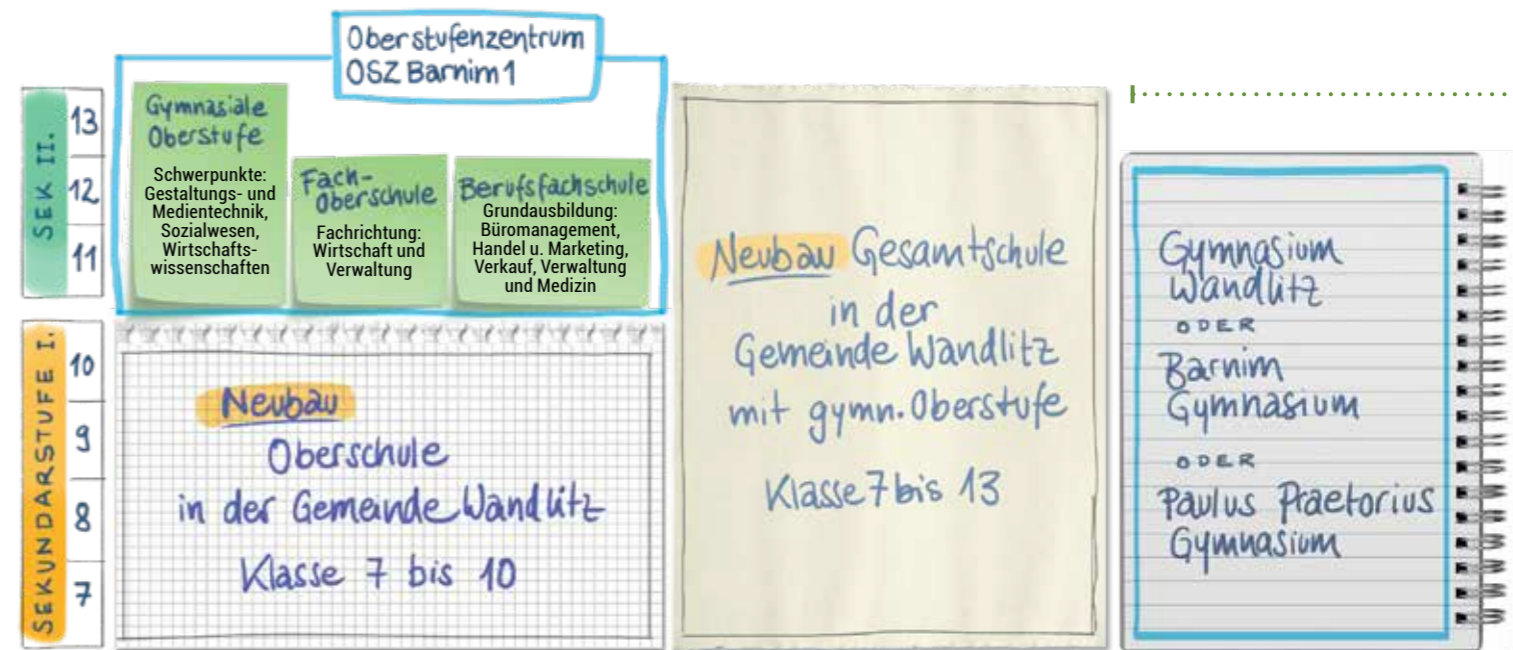 Oberstufenzentrum
OSZ Barnim 1
SEK II.
13
12
11
Gymnasiale
Oberstufe
Schwerpunkte:
Gestaltungs- und
Medientechnik,
Sozialwesen,
Wirtschafts-
wissenschaften
Fach-
Oberschule
Fachrichtung:
Wirtschaft und
Verwaltung
Berufsfachschule
Grundausbildung:
Büromanagement,
Handel u. Marketing,
Verkauf, Verwaltung
und Medizin
SEKUNDARSTUFE I.
10
9
8
7
Neubau
Oberschule
in der Gemeinde Wandlitz
Klasse 7 bis 10
Neubau Gesamtschule
in der
Gemeinde Wandlitz
mit gymn. Oberstufe
Klasse 7 bis 13
Gymnasium
Wandlitz
ODER
Barnim
Gymnasium
ODER
Paulus Praetorius
Gymnasium